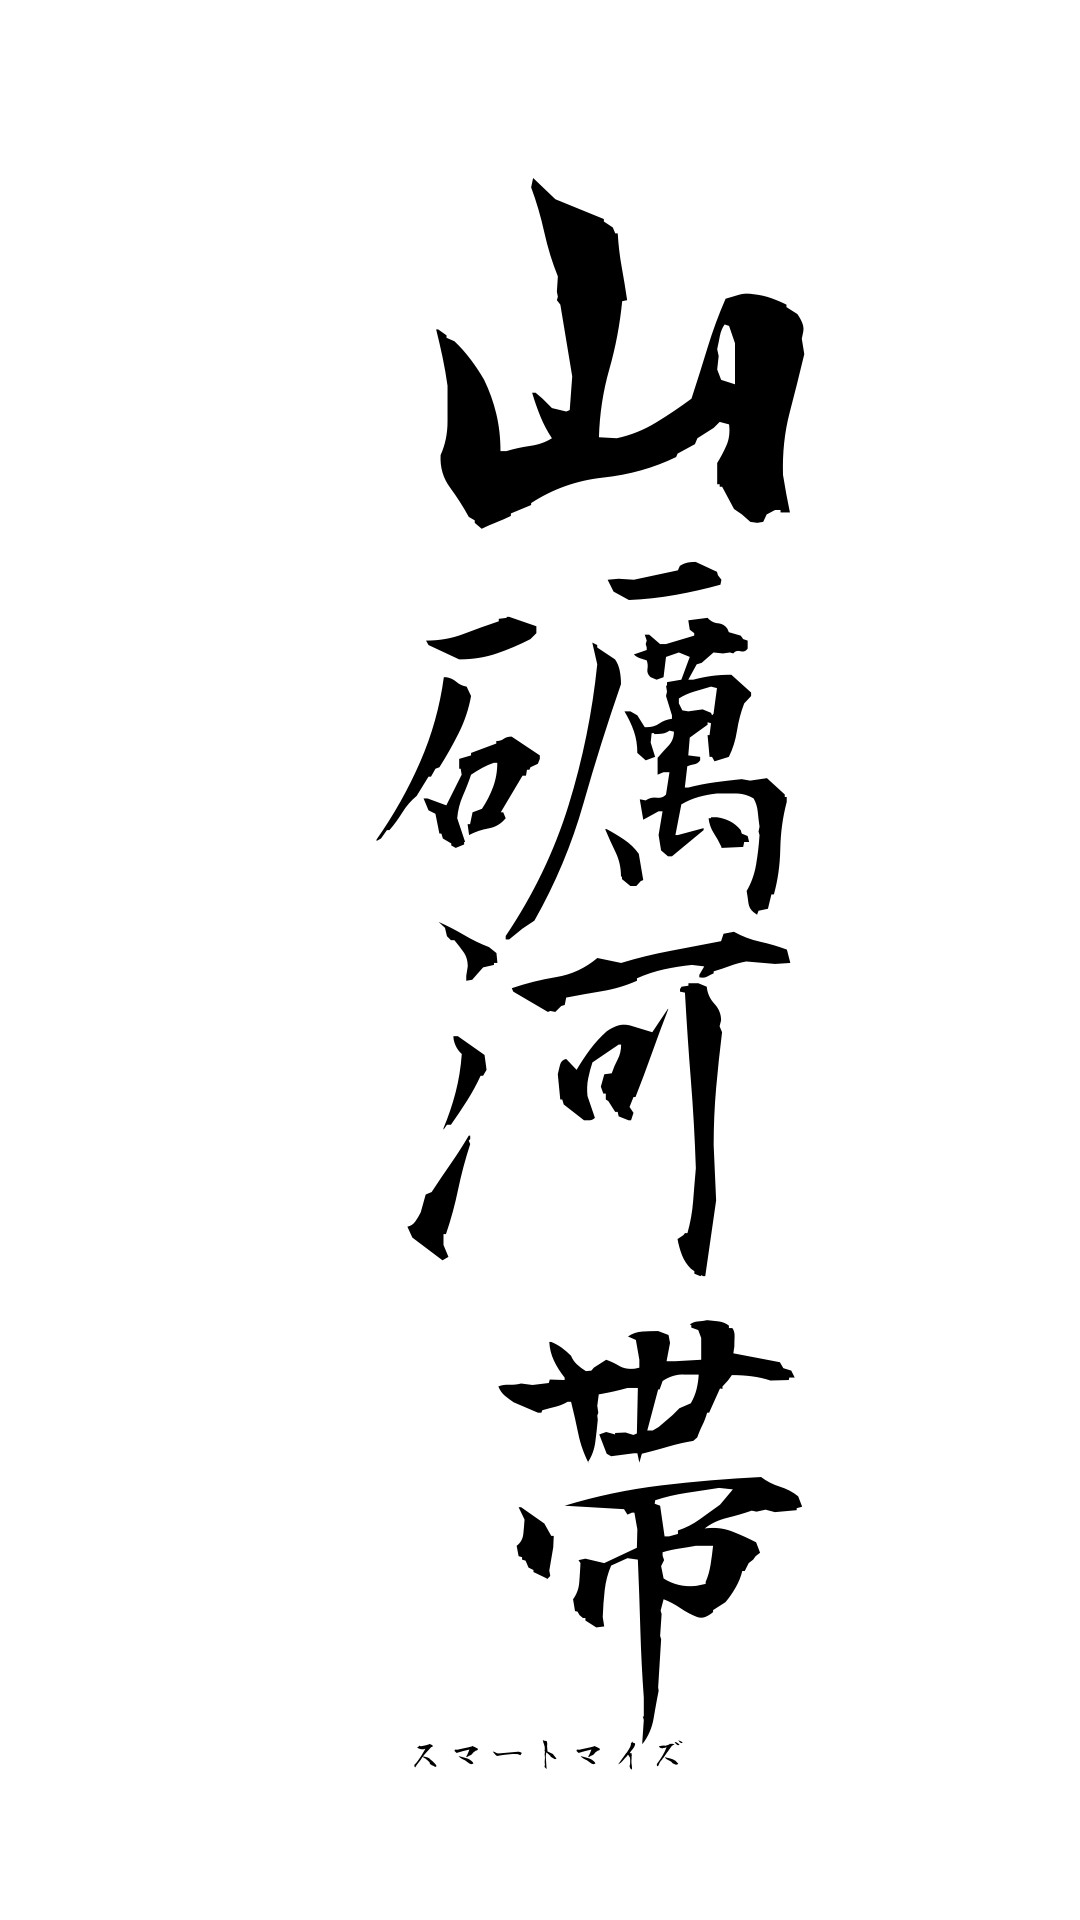 山礪河帯
スマートマイズ